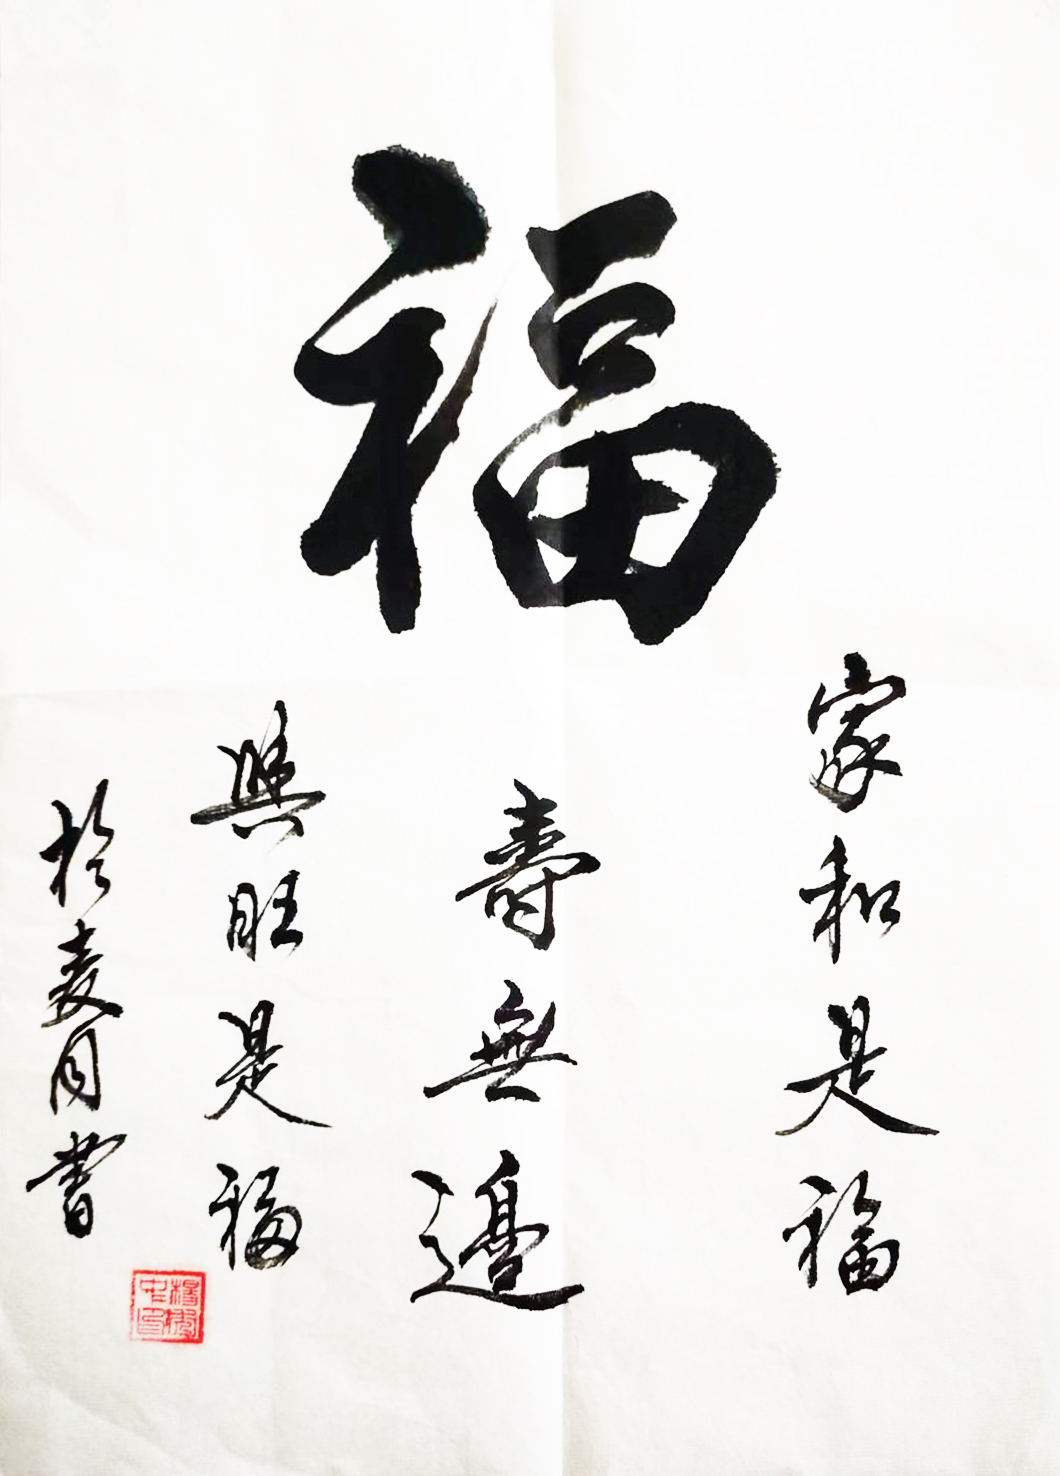 福
家和是福
壽無邊
興旺是福
於夏月書